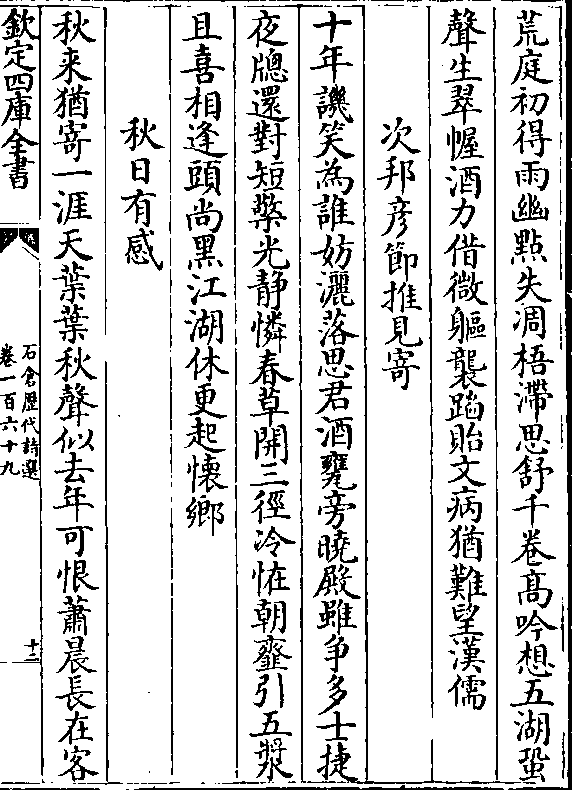 荒庭初得雨幽點失凋梧滯思舒千卷髙吟想五湖蛩
聲生翠幄酒力借微軀襲蹈貽文病猶難望漢儒
次邦彦節推見寄
十年譏笑為誰妨灑落思君酒甕旁曉殿雖爭多士捷
夜牕還對短檠光静憐春草開三徑冷怪朝虀引五漿
且喜相逢頭尚黑江湖休更起懐鄉
秋日有感
秋来猶寄一涯天葉葉秋聲似去年可恨蕭晨長在客
欽定四庫全書
石倉歷代詩選
卷一百六十九
十二